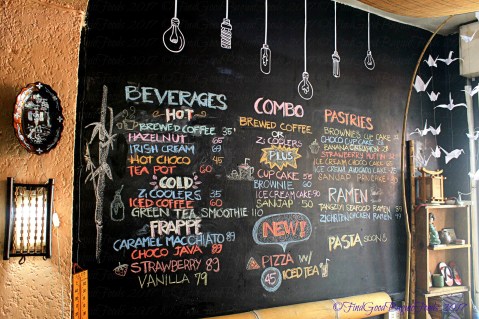 BEVERAGES
HOT
BREWED COFFEE 35
HAZELNUT 65
IRISH CREAM 65
HOT CHOCO 45
TEA POT 60
COLD
ZI COOLERS 35
ICED COFFEE 60
GREEN TEA SMOOTHIE 110
FRAPPÉ
CARAMEL MACCHIATO 89
CHOCO JAVA 89
STRAWBERRY 89
VANILLA 79
COMBO
BREWED COFFEE
OR
ZI COOLERS
PLUS
CUP CAKE
BROWNIE
ICE CREAM
SANJAP
NEW!
PIZZA W/
45 ICED TEA
PASTRIES
BROWNIES CUP CAKE
CHOCO CUP CAKE
BANANA
STRAWBERRY
ICE CREAM CHOCO CAKE
ICE CREAM CAKE
SANJAP
RAMEN
SEAFOOD RAMEN
CHICKEN RAMEN 79
PASTA SOON